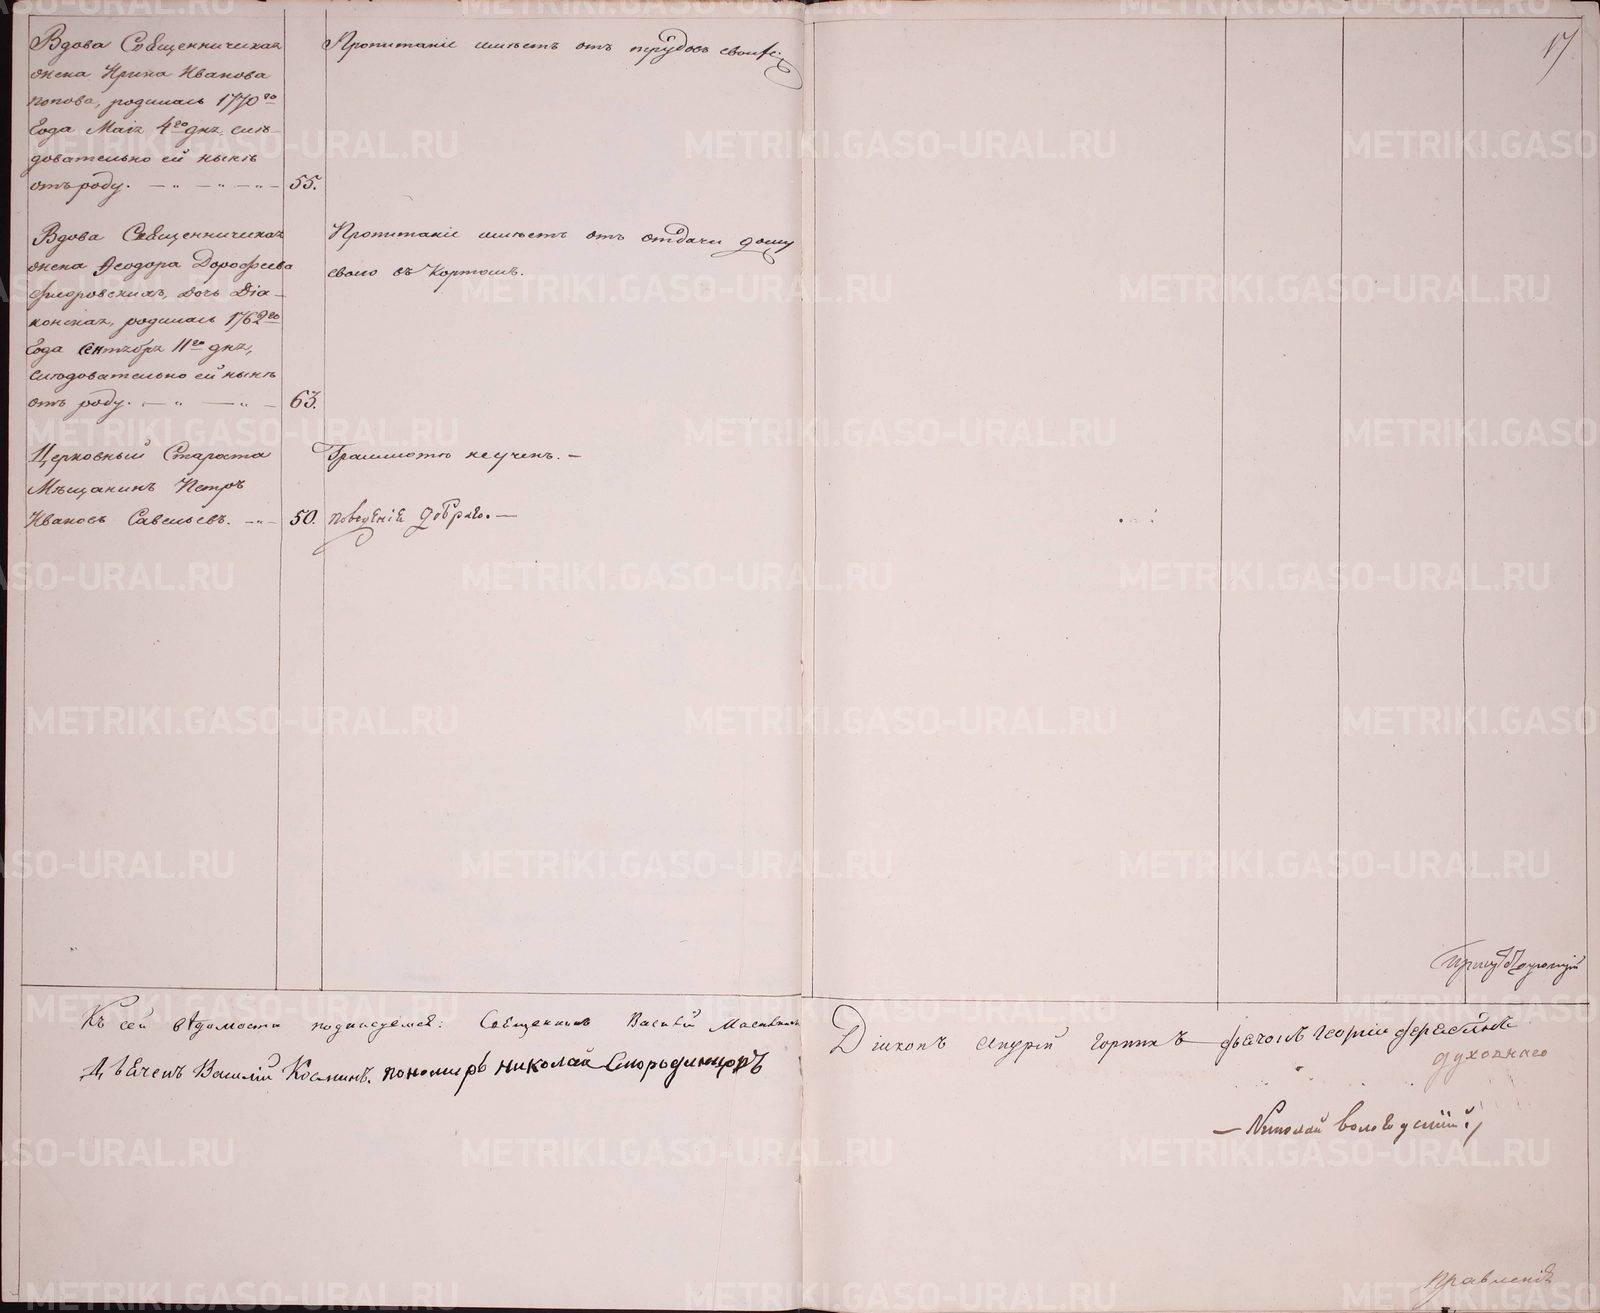 Вдова Священническая
жена Ирина Иванова
Попова, родилась 1770го
Года Маія 4го дня, слѣ-
довательно ей нынѣ
отъ роду. — „ — „ — „ — 55.
Пропитаніе имѣетъ отъ трудовъ своихъ.
Вдова Священническая
жена Ѳеодора Дорофѣева
Фигоровскихъ, дочь Діа-
конская, родилась 1762го
Года Сентября 11го дня,
слѣдовательно ей нынѣ
отъ роду. — „ — „ — 63.
Пропитаніе имѣетъ отъ отдачи дому
своего въ Кортомъ.
Церковный Староста
Мѣщанинъ Петръ
Ивановъ Савельевъ. — „ — 50.
Грамматѣ не ученъ. —
поведѣнія добраго. —
17
Присутствующій
Къ сей вѣдомости подписуемся: Священникъ Василій
Дьячекъ Василій Косминъ. пономарь николай Смородинцовъ
Діаконъ Андрей Горныхъ дьячокъ Георгій
духовнаго
— Николай Вологодскій.
правленія
METRIKI.GASO-URAL.RU